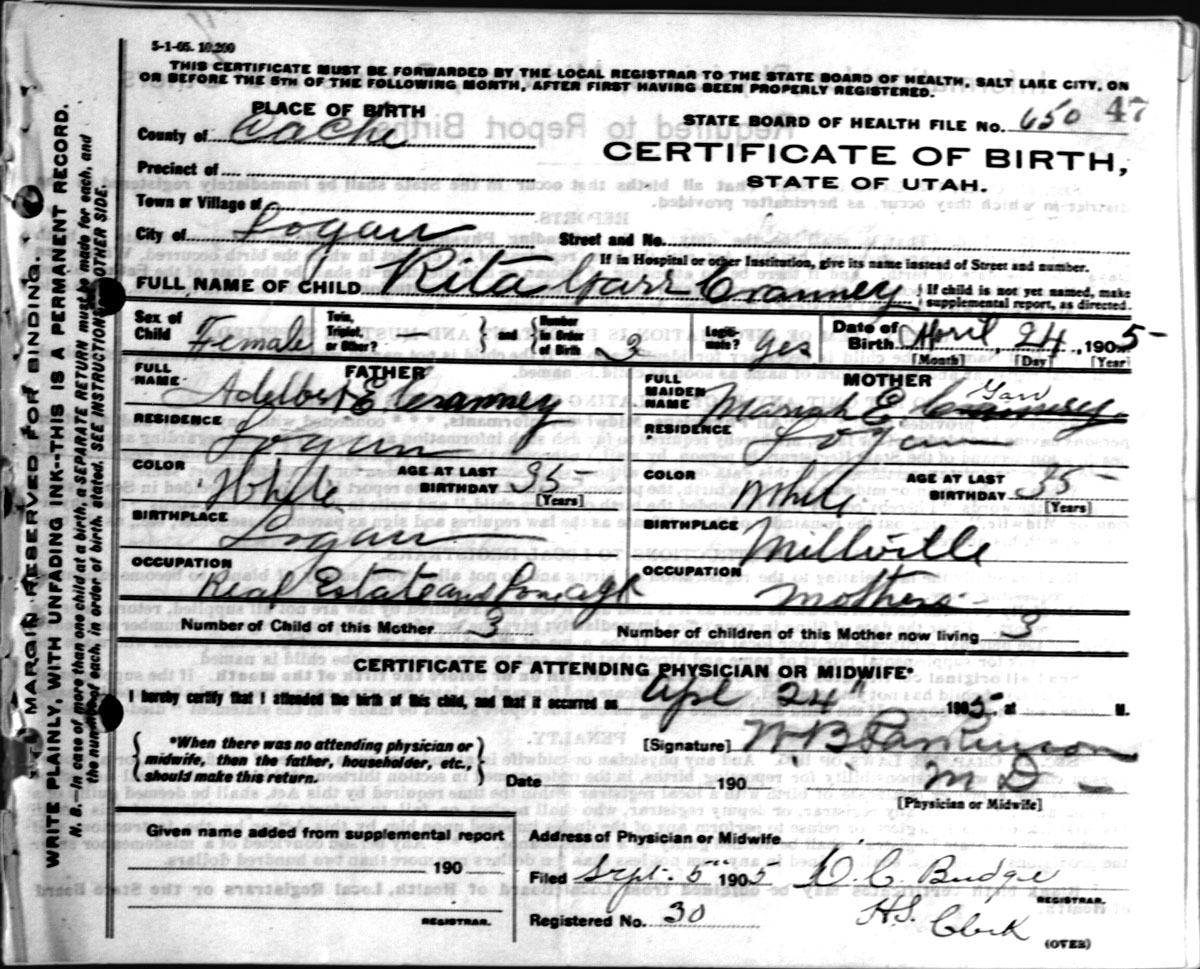 5-1-05. 10,200
THIS CERTIFICATE MUST BE FORWARDED BY THE LOCAL REGISTRAR TO THE STATE BOARD OF HEALTH, SALT LAKE CITY, ON
OR BEFORE THE 5TH OF THE FOLLOWING MONTH, AFTER FIRST HAVING BEEN PROPERLY REGISTERED.
PLACE OF BIRTH
County of Cache
STATE BOARD OF HEALTH FILE No. 650 47
CERTIFICATE OF BIRTH,
STATE OF UTAH.
Precinct of
Town or Village of
City of Logan
Street and No.
If in Hospital or other Institution, give its name instead of Street and number.
FULL NAME OF CHILD Rita Garr Cranney
} If child is not yet named, make supplemental report, as directed.
Sex of Child Female
Twin, Triplet, or Other? —
} and { Number in Order of Birth 3
Legiti-mate? yes
Date of Birth April 24, 1905
[Month] [Day] [Year]
FATHER
FULL NAME Adelbert E Cranney
MOTHER
FULL MAIDEN NAME Mariah E Cranney Garr
RESIDENCE Logan
RESIDENCE Logan
COLOR White
AGE AT LAST BIRTHDAY 35 [Years]
COLOR White
AGE AT LAST BIRTHDAY 35 [Years]
BIRTHPLACE Logan
BIRTHPLACE Millville
OCCUPATION Real Estate and
OCCUPATION Mothers
Number of Child of this Mother 3
Number of children of this Mother now living 3
CERTIFICATE OF ATTENDING PHYSICIAN OR MIDWIFE*
I hereby certify that I attended the birth of this child, and that it occurred on Apl 24" 1905 at M.
{ *When there was no attending physician or midwife, then the father, householder, etc., should make this return. }
[Signature] W B Parkinson
M D
Date 190
[Physician or Midwife]
Given name added from supplemental report
190
REGISTRAR.
Address of Physician or Midwife
Filed Sept. 5 1905 W. C. Budge
REGISTRAR.
Registered No. 30
H.S. Clark
(OVER)
MARGIN RESERVED FOR BINDING.
WRITE PLAINLY, WITH UNFADING INK--THIS IS A PERMANENT RECORD.
N. B.—In case of more than one child at a birth, a SEPARATE RETURN must be made for each, and
the number of each, in order of birth, stated. SEE INSTRUCTIONS OTHER SIDE.